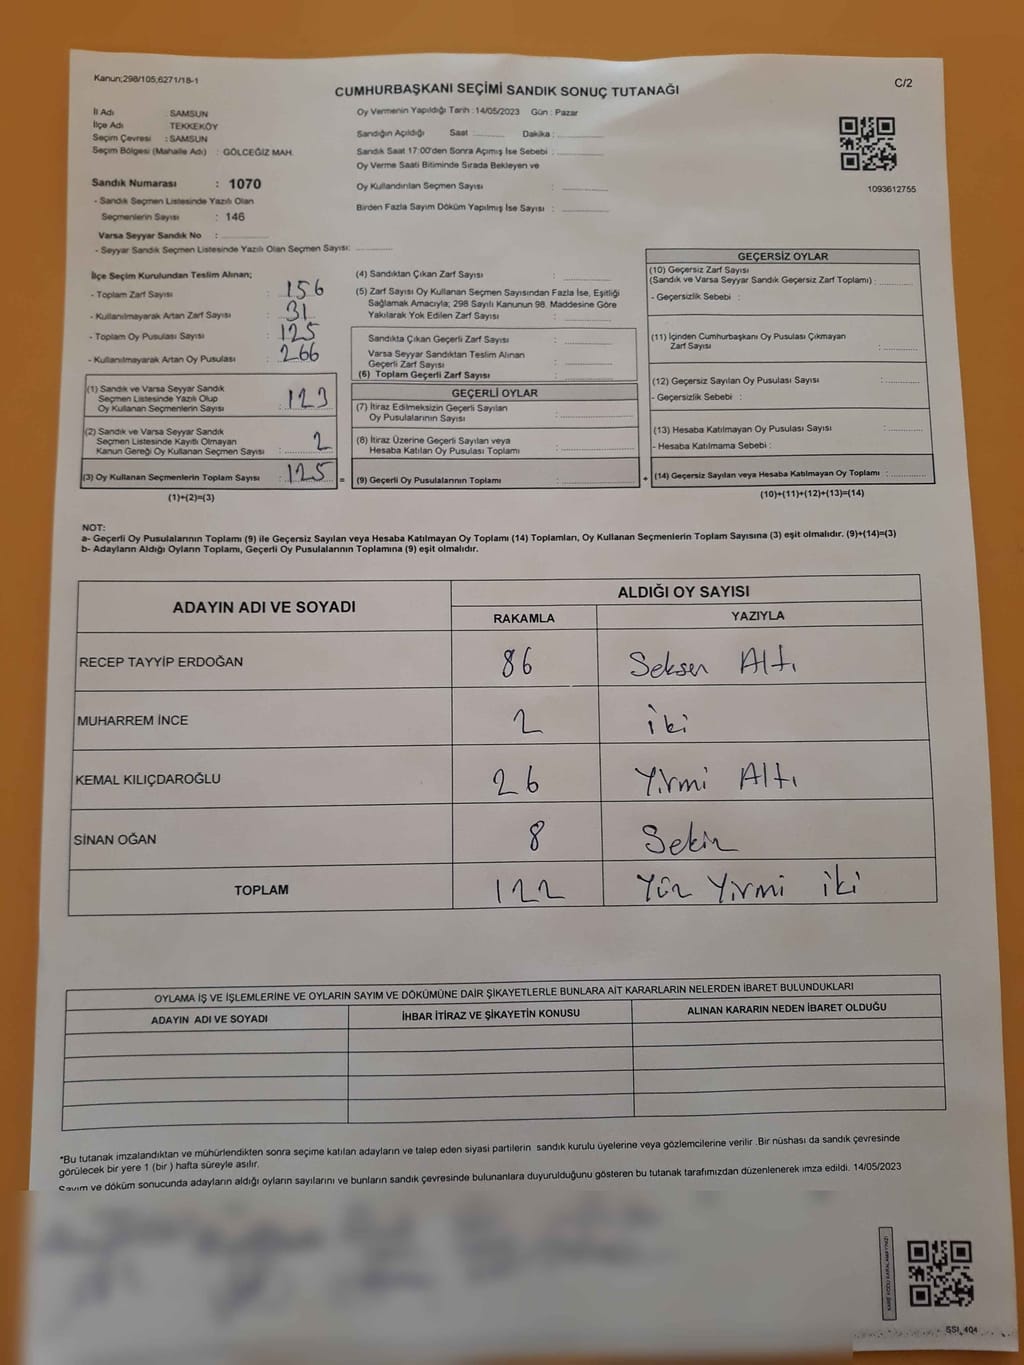 Kanun;298/105;6271/18-1
C/2
CUMHURBAŞKANI SEÇİMİ SANDIK SONUÇ TUTANAĞI
İl Adı : SAMSUN
İlçe Adı : TEKKEKÖY
Seçim Çevresi : SAMSUN
Seçim Bölgesi (Mahalle Adı) : GÖLCEĞİZ MAH.
Sandık Numarası : 1070
- Sandık Seçmen Listesinde Yazılı Olan
Seçmenlerin Sayısı : 146
Varsa Seyyar Sandık No :
- Seyyar Sandık Seçmen Listesinde Yazılı Olan Seçmen Sayısı:
Oy Vermenin Yapıldığı Tarih : 14/05/2023 Gün : Pazar
Sandığın Açıldığı Saat Dakika :
Sandık Saat 17:00'den Sonra Açımış İse Sebebi :
Oy Verme Saati Bitiminde Sırada Bekleyen ve
Oy Kullandırılan Seçmen Sayısı :
Birden Fazla Sayım Döküm Yapılmış İse Sayısı :
1093612755
İlçe Seçim Kurulundan Teslim Alınan;
- Toplam Zarf Sayısı : 156
- Kullanılmayarak Artan Zarf Sayısı : 31
- Toplam Oy Pusulası Sayısı : 125
- Kullanılmayarak Artan Oy Pusulası : 266
(1) Sandık ve Varsa Seyyar Sandık
Seçmen Listesinde Yazılı Olup
Oy Kullanan Seçmenlerin Sayısı : 123
(2) Sandık ve Varsa Seyyar Sandık
Seçmen Listesinde Kayıtlı Olmayan
Kanun Gereği Oy Kullanan Seçmen Sayısı : 2
(3) Oy Kullanan Seçmenlerin Toplam Sayısı : 125
(1)+(2)=(3)
(4) Sandıktan Çıkan Zarf Sayısı :
(5) Zarf Sayısı Oy Kullanan Seçmen Sayısından Fazla İse, Eşitliği
Sağlamak Amacıyla; 298 Sayılı Kanunun 98. Maddesine Göre
Yakılarak Yok Edilen Zarf Sayısı :
Sandıkta Çıkan Geçerli Zarf Sayısı :
Varsa Seyyar Sandıktan Teslim Alınan
Geçerli Zarf Sayısı :
(6) Toplam Geçerli Zarf Sayısı :
GEÇERLİ OYLAR
(7) İtiraz Edilmeksizin Geçerli Sayılan
Oy Pusulalarının Sayısı :
(8) İtiraz Üzerine Geçerli Sayılan veya
Hesaba Katılan Oy Pusulası Toplamı :
= (9) Geçerli Oy Pusulalarının Toplamı :
GEÇERSİZ OYLAR
(10) Geçersiz Zarf Sayısı
(Sandık ve Varsa Seyyar Sandık Geçersiz Zarf Toplamı) :
- Geçersizlik Sebebi :
(11) İçinden Cumhurbaşkanı Oy Pusulası Çıkmayan
Zarf Sayısı :
(12) Geçersiz Sayılan Oy Pusulası Sayısı :
- Geçersizlik Sebebi :
(13) Hesaba Katılmayan Oy Pusulası Sayısı :
- Hesaba Katılmama Sebebi :
+ (14) Geçersiz Sayılan veya Hesaba Katılmayan Oy Toplamı :
(10)+(11)+(12)+(13)=(14)
NOT:
a- Geçerli Oy Pusulalarının Toplamı (9) ile Geçersiz Sayılan veya Hesaba Katılmayan Oy Toplamı (14) Toplamları, Oy Kullanan Seçmenlerin Toplam Sayısına (3) eşit olmalıdır. (9)+(14)=(3)
b- Adayların Aldığı Oyların Toplamı, Geçerli Oy Pusulalarının Toplamına (9) eşit olmalıdır.
ADAYIN ADI VE SOYADI
ALDIĞI OY SAYISI
RAKAMLA YAZIYLA
RECEP TAYYİP ERDOĞAN 86 Seksen Altı
MUHARREM İNCE 2 iki
KEMAL KILIÇDAROĞLU 26 Yirmi Altı
SİNAN OĞAN 8 Sekiz
TOPLAM 122 Yüz Yirmi iki
OYLAMA İŞ VE İŞLEMLERİNE VE OYLARIN SAYIM VE DÖKÜMÜNE DAİR ŞİKAYETLERLE BUNLARA AİT KARARLARIN NELERDEN İBARET BULUNDUKLARI
ADAYIN ADI VE SOYADI İHBAR İTİRAZ VE ŞİKAYETİN KONUSU ALINAN KARARIN NEDEN İBARET OLDUĞU
*Bu tutanak imzalandıktan ve mühürlendikten sonra seçime katılan adayların ve talep eden siyasi partilerin sandık kurulu üyelerine veya gözlemcilerine verilir .Bir nüshası da sandık çevresinde
görülecek bir yere 1 (bir ) hafta süreyle asılır.
Sayım ve döküm sonucunda adayların aldığı oyların sayılarını ve bunların sandık çevresinde bulunanlara duyurulduğunu gösteren bu tutanak tarafımızdan düzenlenerek imza edildi. 14/05/2023
KARE KODU KARALAMAYINIZ!
SSI_404